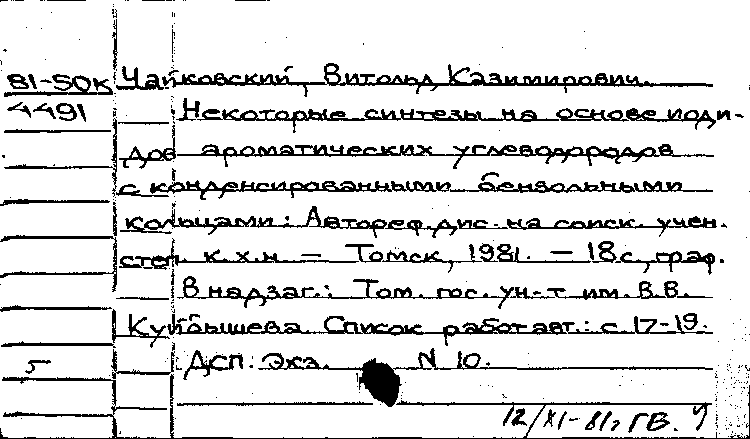 81-50к Чайковский, Витольд Казимирович.
4491 Некоторые синтезы на основе иоди-
дов ароматических углеводородов
с конденсированными бензольными
кольцами: Автореф. дис. на соиск. учен.
степ. к.х.н. – Томск, 1981. – 18 с., граф.
В надзаг.: Том. гос. ун-т им. В.В.
Куйбышева. Список работ авт.: с. 17-19.
5 ДСП. Экз. N 10.
12/XI-81г ГВ.